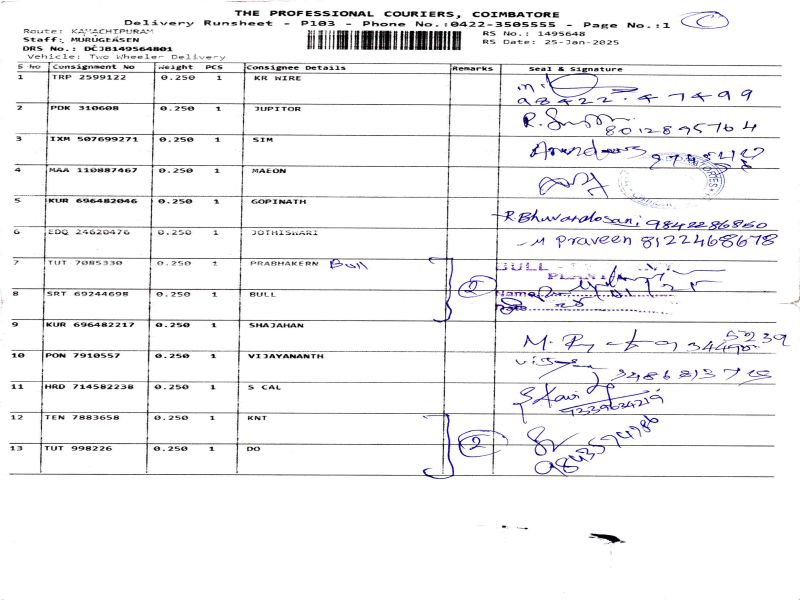 THE PROFESSIONAL COURIERS, COIMBATORE
Delivery Runsheet - P103 - Phone No.:0422-3505555 - Page No.:1 C
Route: KAMACHIPURAM
RS No.: 1495648
Staff: MURUGEASEN
RS Date: 25-Jan-2025
DRS No.: DCJB149564801
Vehicle: Two Wheeler Delivery
S No Consignment No Weight PCS Consignee Details Remarks Seal & Signature
1 TRP 2599122 0.250 1 KR WIRE 98422 47499
2 PDK 310608 0.250 1 JUPITOR 8012895764
3 IXM 507699271 0.250 1 SIM
4 MAA 110887467 0.250 1 MAEON
5 KUR 696482046 0.250 1 GOPINATH R.Bhuvaneosani 9842286860
6 EDQ 24620476 0.250 1 JOTHISWARI M Praveen 8122468678
7 TUT 7085330 0.250 1 PRABHAKERN Bull 2 BULL
8 SRT 69244698 0.250 1 BULL
9 KUR 696482217 0.250 1 SHAJAHAN
10 PON 7910557 0.250 1 VIJAYANANTH
11 HRD 714582238 0.250 1 S CAL 9339634219
12 TEN 7883658 0.250 1 KNT 2
13 TUT 998226 0.250 1 DO 9843594986